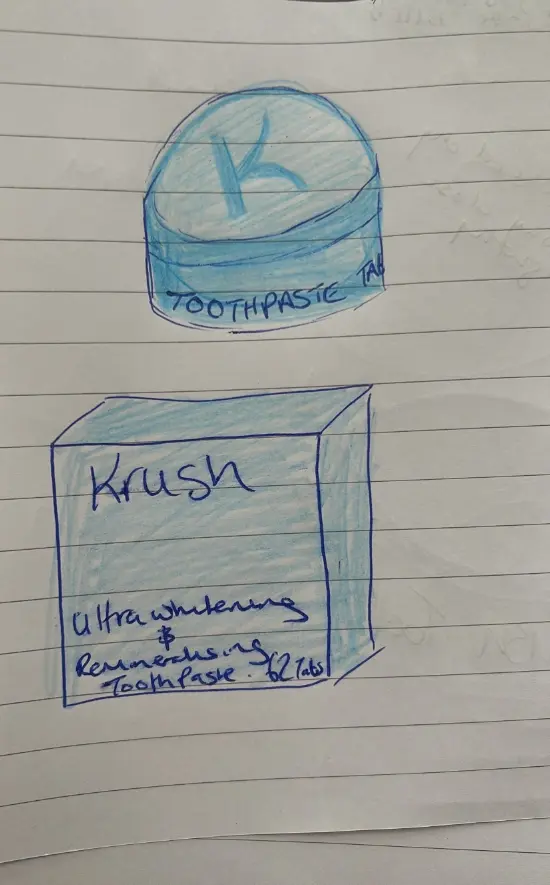 K
TOOTHPASTE TAB
Krush
Ultra whitening
&
Remineralising
Toothpaste. 62 Tabs